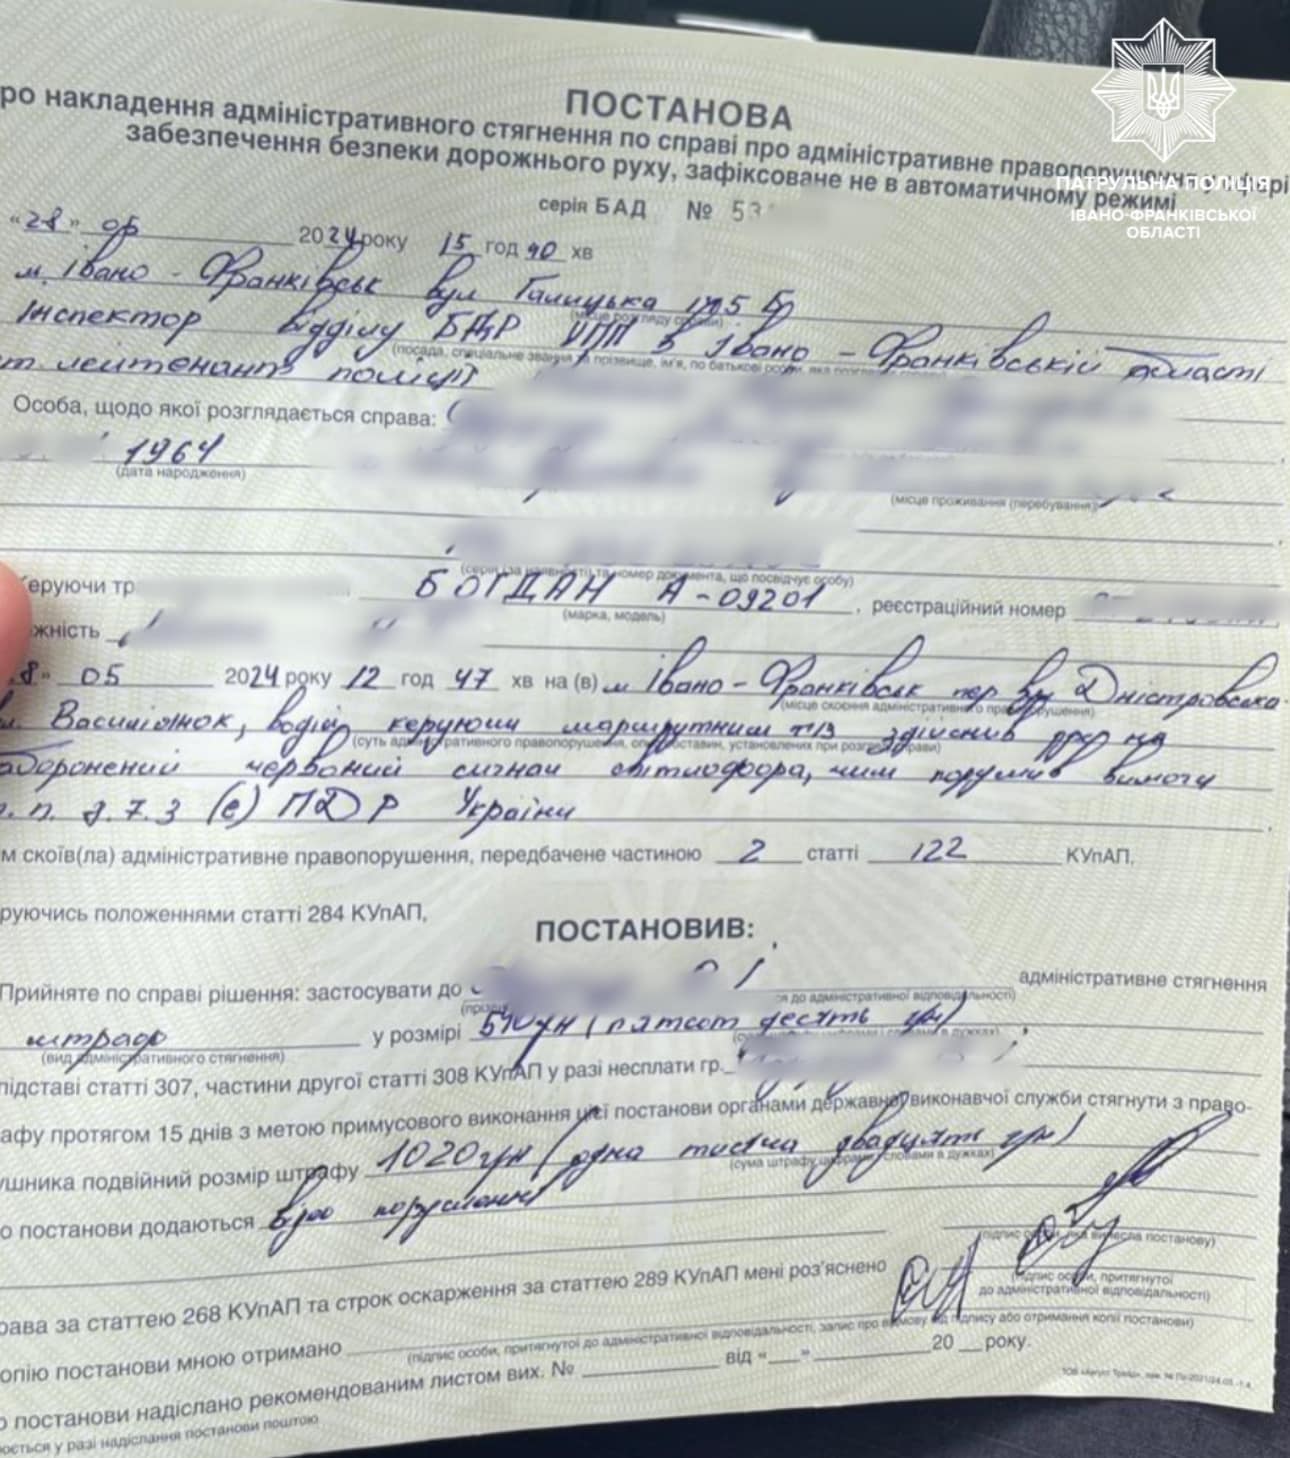 ПОСТАНОВА
ро накладення адміністративного стягнення по справі про адміністративне правопорушення у сфері
забезпечення безпеки дорожнього руху, зафіксоване не в автоматичному режимі
ПАТРУЛЬНА ПОЛІЦІЯ
ІВАНО-ФРАНКІВСЬКОЇ
ОБЛАСТІ
серія БАД № 53
"28" 05 2024 року 15 год 40 хв
м. Івано - Франківськ вул Галицька
(місце розгляду справи)
Інспектор відділу БДР УПП в Івано - Франківській області
(посада, спеціальне звання та прізвище, ім'я, по батькові особи, яка
ст. лейтенант поліції
Особа, щодо якої розглядається справа:
1964
(дата народження)
(місце проживання (перебування)
(серія (за наявності) та номер документа, що посвідчує особу)
еруючи тр БОГДАН А-09201, реєстраційний номер
(марка, модель)
жність
8" 05 2024 року 12 год 47 хв на (в) м Івано - Франківськ пер вул Дністровська
(місце скоєння адміністративного правопорушення)
Василіянок, водій керуючи маршрутним т/з здійснив рух на
(суть адміністративного правопорушення, опис обставин, установлених при розгляді справи)
аборонений червоний сигнал світлофора, чим порушив вимоги
п. 8.7.3 (е) ПДР України
м скоїв(ла) адміністративне правопорушення, передбачене частиною 2 статті 122 КУпАП,
руючись положеннями статті 284 КУпАП,
ПОСТАНОВИВ:
Прийняте по справі рішення: застосувати до адміністративне стягнення
ся до адміністративної відповідальності)
штраф у розмірі 510 грн (пятсот десять грн)
(вид адміністративного стягнення)
підставі статті 307, частини другої статті 308 КУпАП у разі несплати гр.
афу протягом 15 днів з метою примусового виконання цієї постанови органами державної виконавчої служби стягнути з право-
ушника подвійний розмір штрафу 1020 грн (одна тисяча двадцять грн)
(сума штрафу цифрами і словами в дужках)
о постанови додаються відео порушення
(підпис особи, яка винесла постанову)
(підпис особи, притягнутої
до адміністративної відповідальності)
рава за статтею 268 КУпАП та строк оскарження за статтею 289 КУпАП мені роз'яснено
опію постанови мною отримано
(підпис особи, притягнутої до адміністративної відповідальності, запис про відмову від підпису або отримання копії постанови)
о постанови надіслано рекомендованим листом вих. № від «__» 20 __ року.
ється у разі надіслання постанови поштою